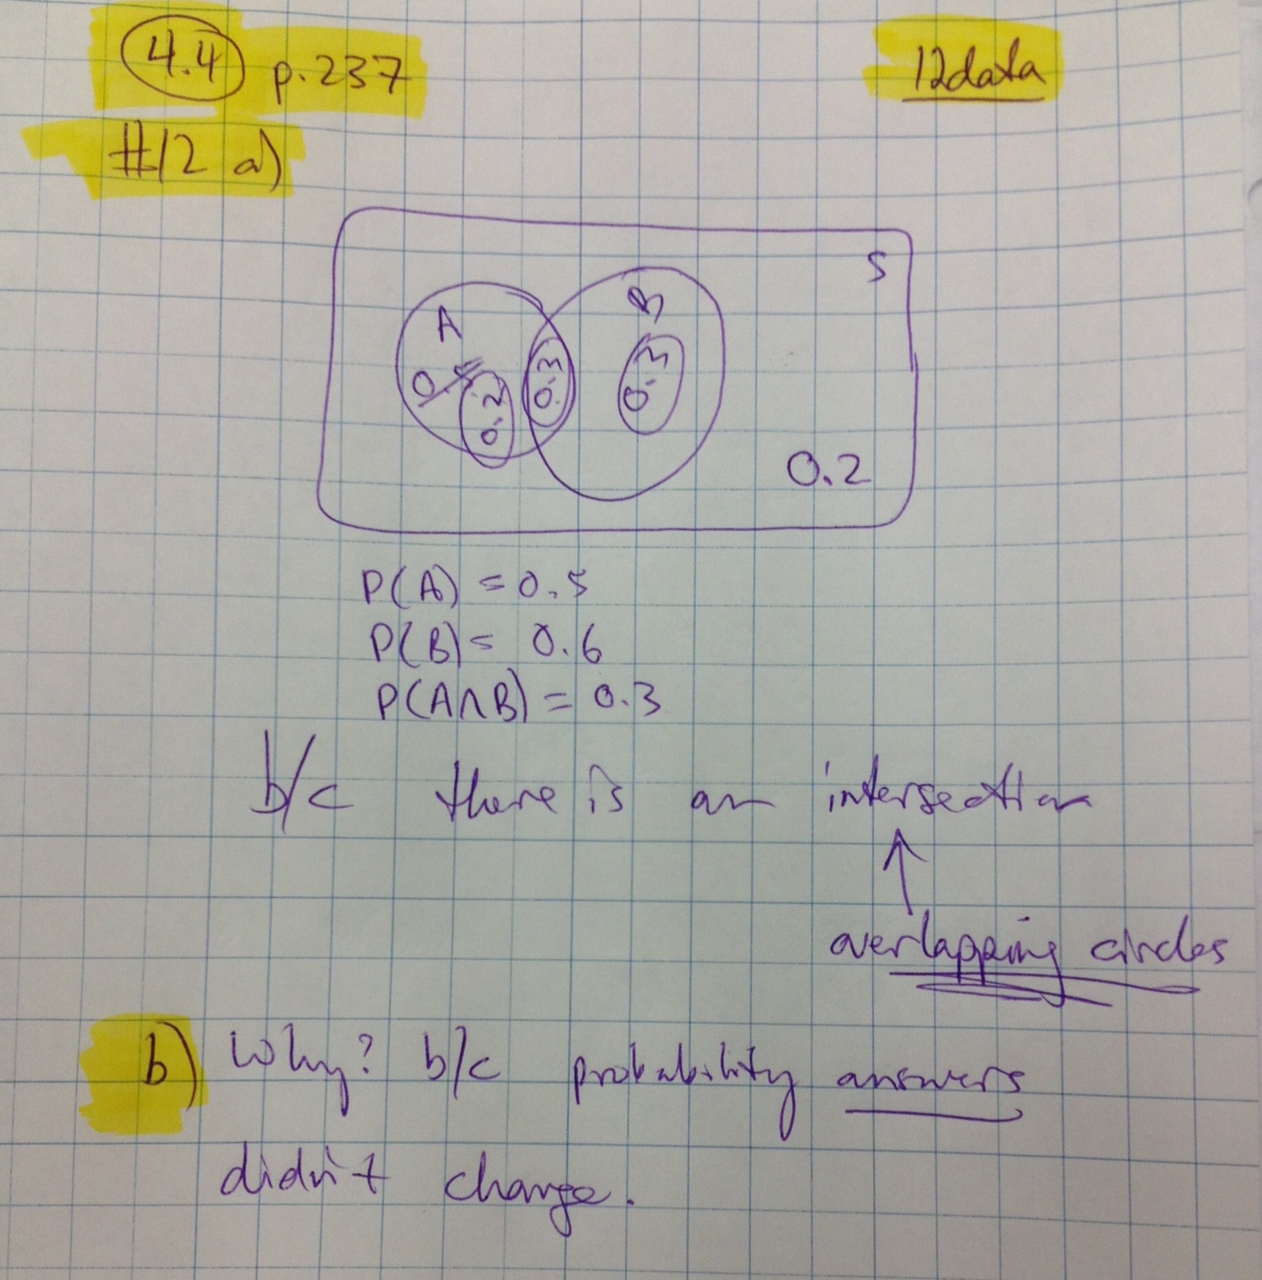 4.4 p.237
12data
#12 a)
S
A
B
0.2
0.3
0.3
0.2
P(A) = 0.5
P(B) = 0.6
P(A∩B) = 0.3
b/c there is an intersection
↑
overlapping circles
b) Why? b/c probability answers
didn't change.